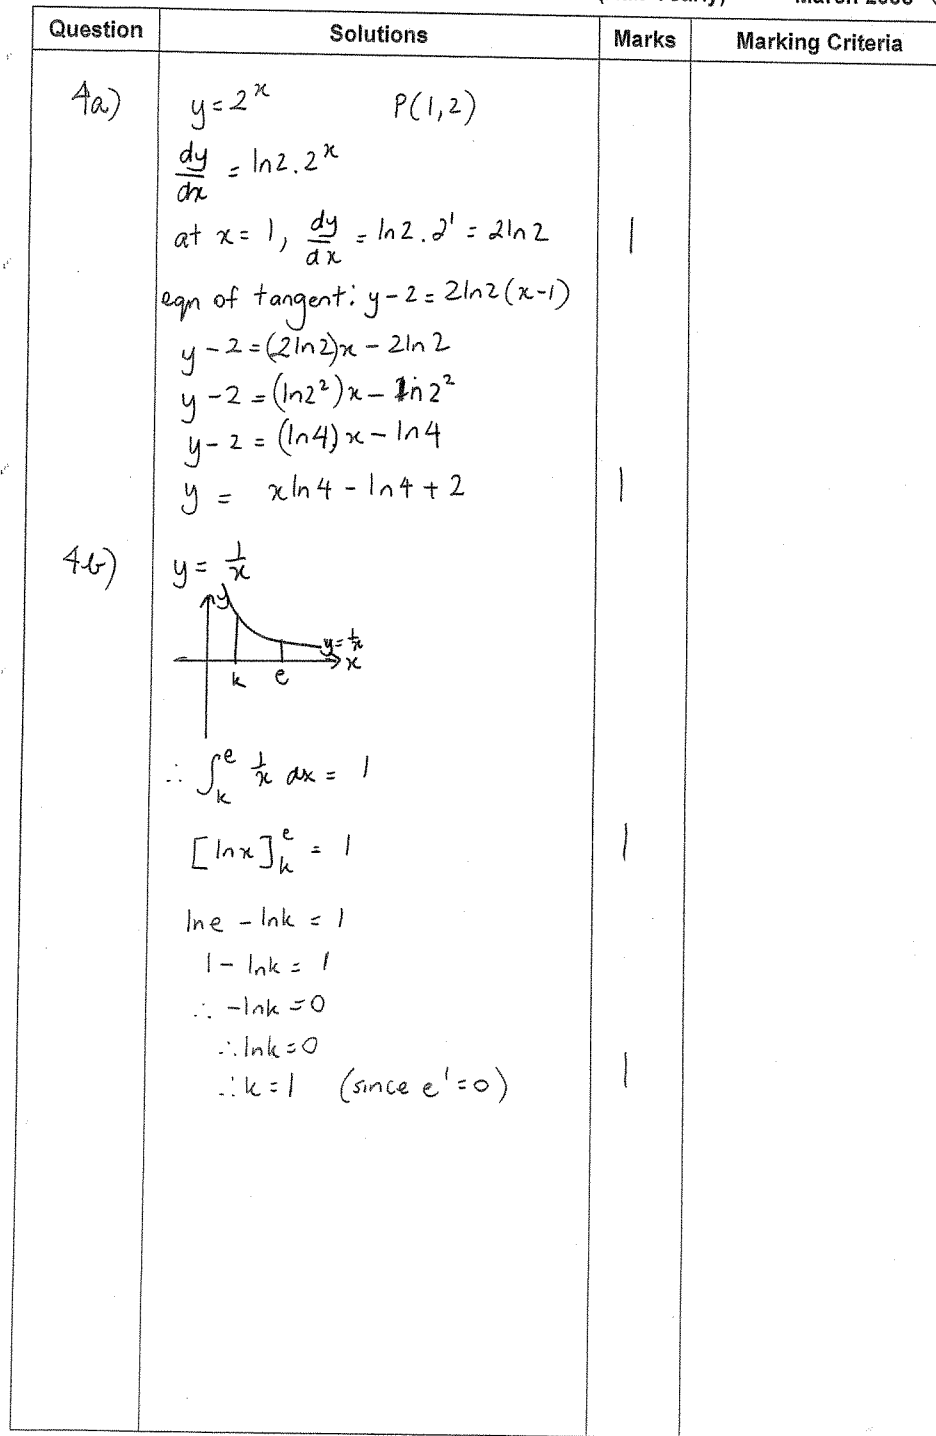 Question Solutions Marks Marking Criteria
4a) y = 2^x P(1,2)
dy/dx = ln2.2^x
at x = 1, dy/dx = ln2.2^1 = 2ln2 1
eqn of tangent: y-2 = 2ln2(x-1)
y-2 = (2ln2)x - 2ln2
y-2 = (ln2^2)x - ln2^2
y-2 = (ln4)x - ln4
y = xln4 - ln4 + 2 1
4b) y = 1/x
y
y = 1/x
x
k e
∴ ∫_k^e 1/x dx = 1
[lnx]_k^e = 1 1
lne - lnk = 1
1 - lnk = 1
∴ -lnk = 0
∴ lnk = 0
∴ k = 1 (since e^1 = 0) 1